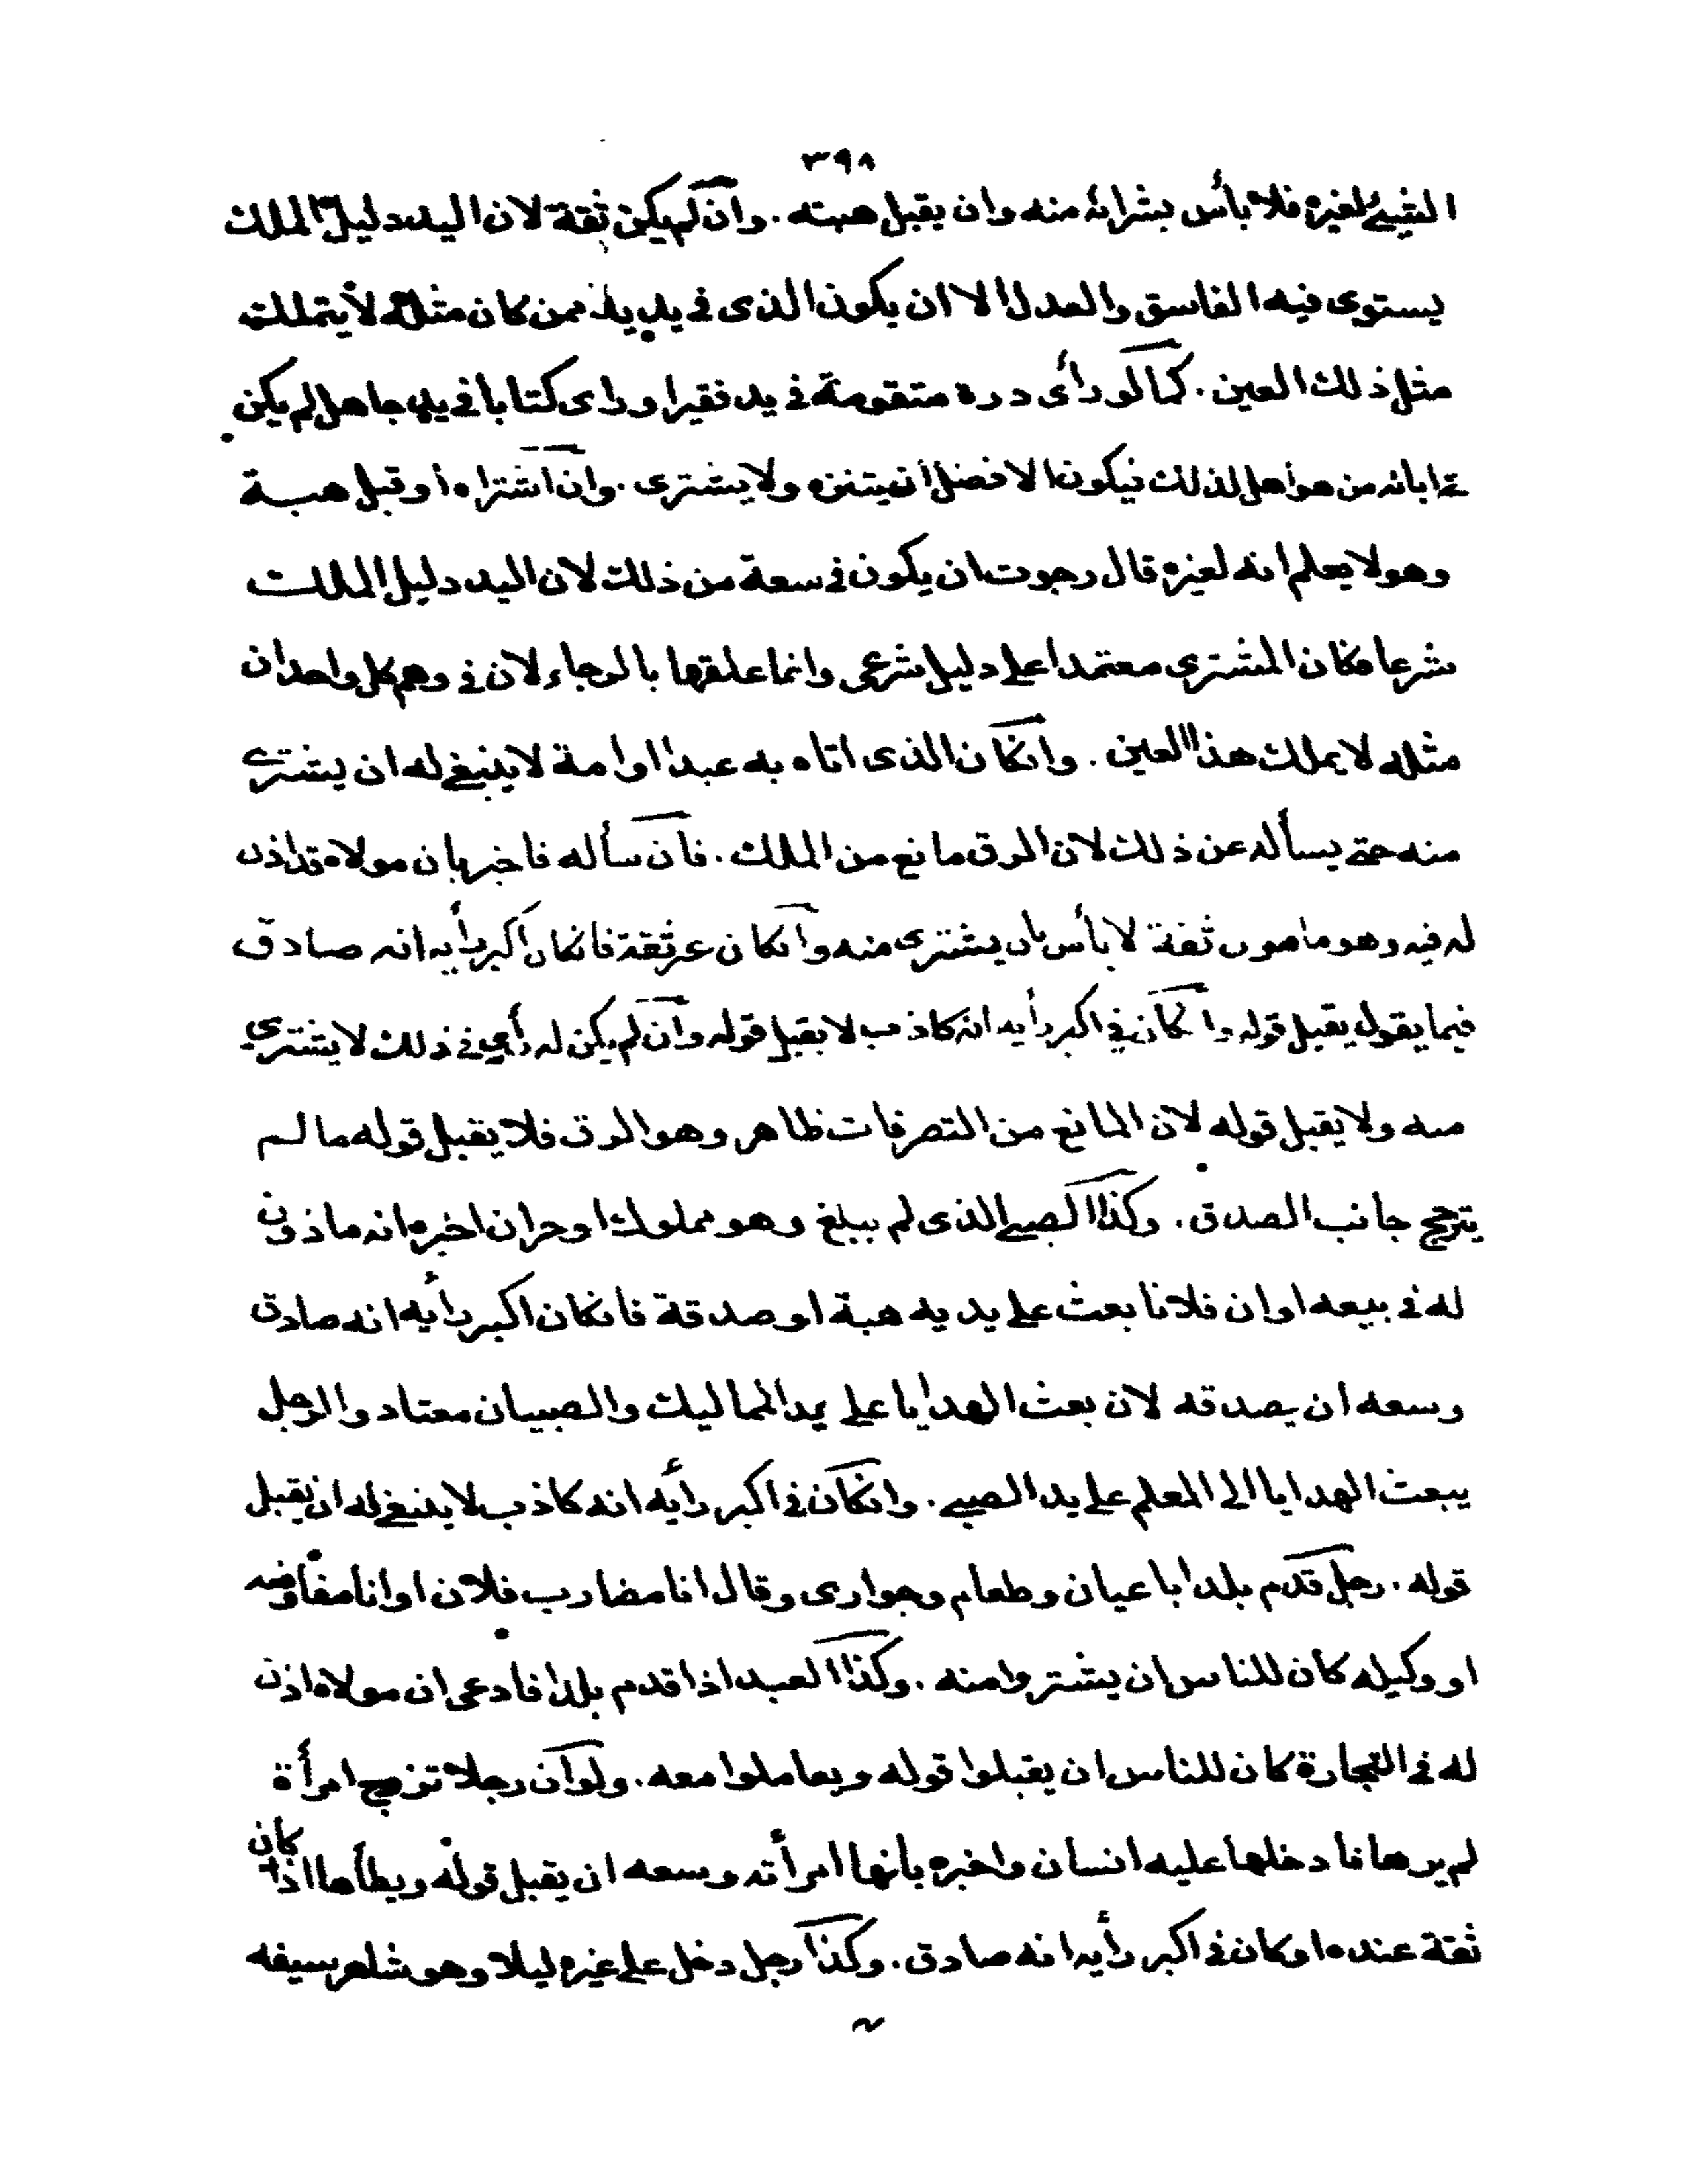 ٣٩٨
الشيئ لغيره فلا بأس بشرائه منه وان يقبل هبته . وان لم يكن ثقة لان اليد دليل الملك
يستوى فيه الفاسق والعدل الا ان يكون الذى فى يديه ممن كان مثله لا يتملك
مثل ذلك العين . كما لو رأى درة متقومة فى يد فقير او راى كتابا فى يد جاهل لم يكن
آبائه من هو اهل لذلك فيكون الافضل ان يتنزه ولا يشترى . وان اشتراه او قبل هبة
وهو لا يعلم انه لغيره قال رجوت ان يكون فى سعة من ذلك لان اليد دليل الملك
شرعا فكان المشترى معتمدا على دليل شرعى وانما علقها بالرجاء لان فى وهم كل واحد ان
مثله لا يملك هذا العين . وانكان الذى اتاه به عبدا او امة لا ينبغى له ان يشترى
منه حتى يسأله عن ذلك لان الرق مانع من الملك . فان سأله فاخبر بان مولاه قد اذن
له فيه وهو مامون ثقة لا بأس بان يشترى منه وانكان غير ثقة فانكان اكبر رأيه انه صادق
فيما يقول يقبل قوله وانكان فى اكبر رأيه انه كاذب لا يقبل قوله وان لم يكن له رأى فى ذلك لا يشترى
منه ولا يقبل قوله لان المانع من التصرفات ظاهر وهو الرق فلا يقبل قوله ما لم
يترجح جانب الصدق . وكذا الصبى الذى لم يبلغ وهو مملوك او حر ان اخبره انه ماذون
له فى بيعه او ان فلانا بعث على يديه هبة او صدقة فانكان اكبر رأيه انه صادق
وسعه ان يصدقه لان بعث الهدايا على يد المماليك والصبيان معتاد والرجل
يبعث الهدايا الى المعلم على يد الصبى . وانكان فى اكبر رأيه انه كاذب لا ينبغى له ان يقبل
قوله . رجل قدم بلدا باعيان وطعام وجوارى وقال انا مضارب فلان او انا مفاوضه
او وكيله كان للناس ان يشتروا منه . وكذا العبد اذا قدم بلدا فادعى ان مولاه اذن
له فى التجارة كان للناس ان يقبلوا قوله ويعاملوا معه . ولو ان رجلا تزوج امرأة
لم يرها فادخلها عليه انسان واخبره بانها امرأته وسعه ان يقبل قوله ويطأها اذا كان
ثقة عنده او كان فى اكبر رأيه انه صادق . وكذا رجل دخل على غيره ليلا وهو شاهر سيفه